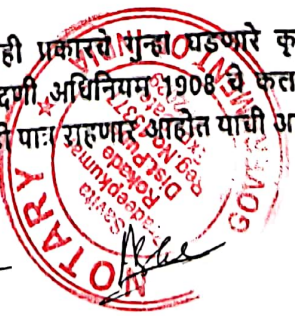 ही प्रकारचे गुन्हा घडणारे कृ
दणी अधिनियम 1908 चे कल
राहणार आहोत याची
NOTARY
GOVERNMENT OF INDIA
Savita
Pradeepkumar
Rokade
Dist.Pune
Reg.No.